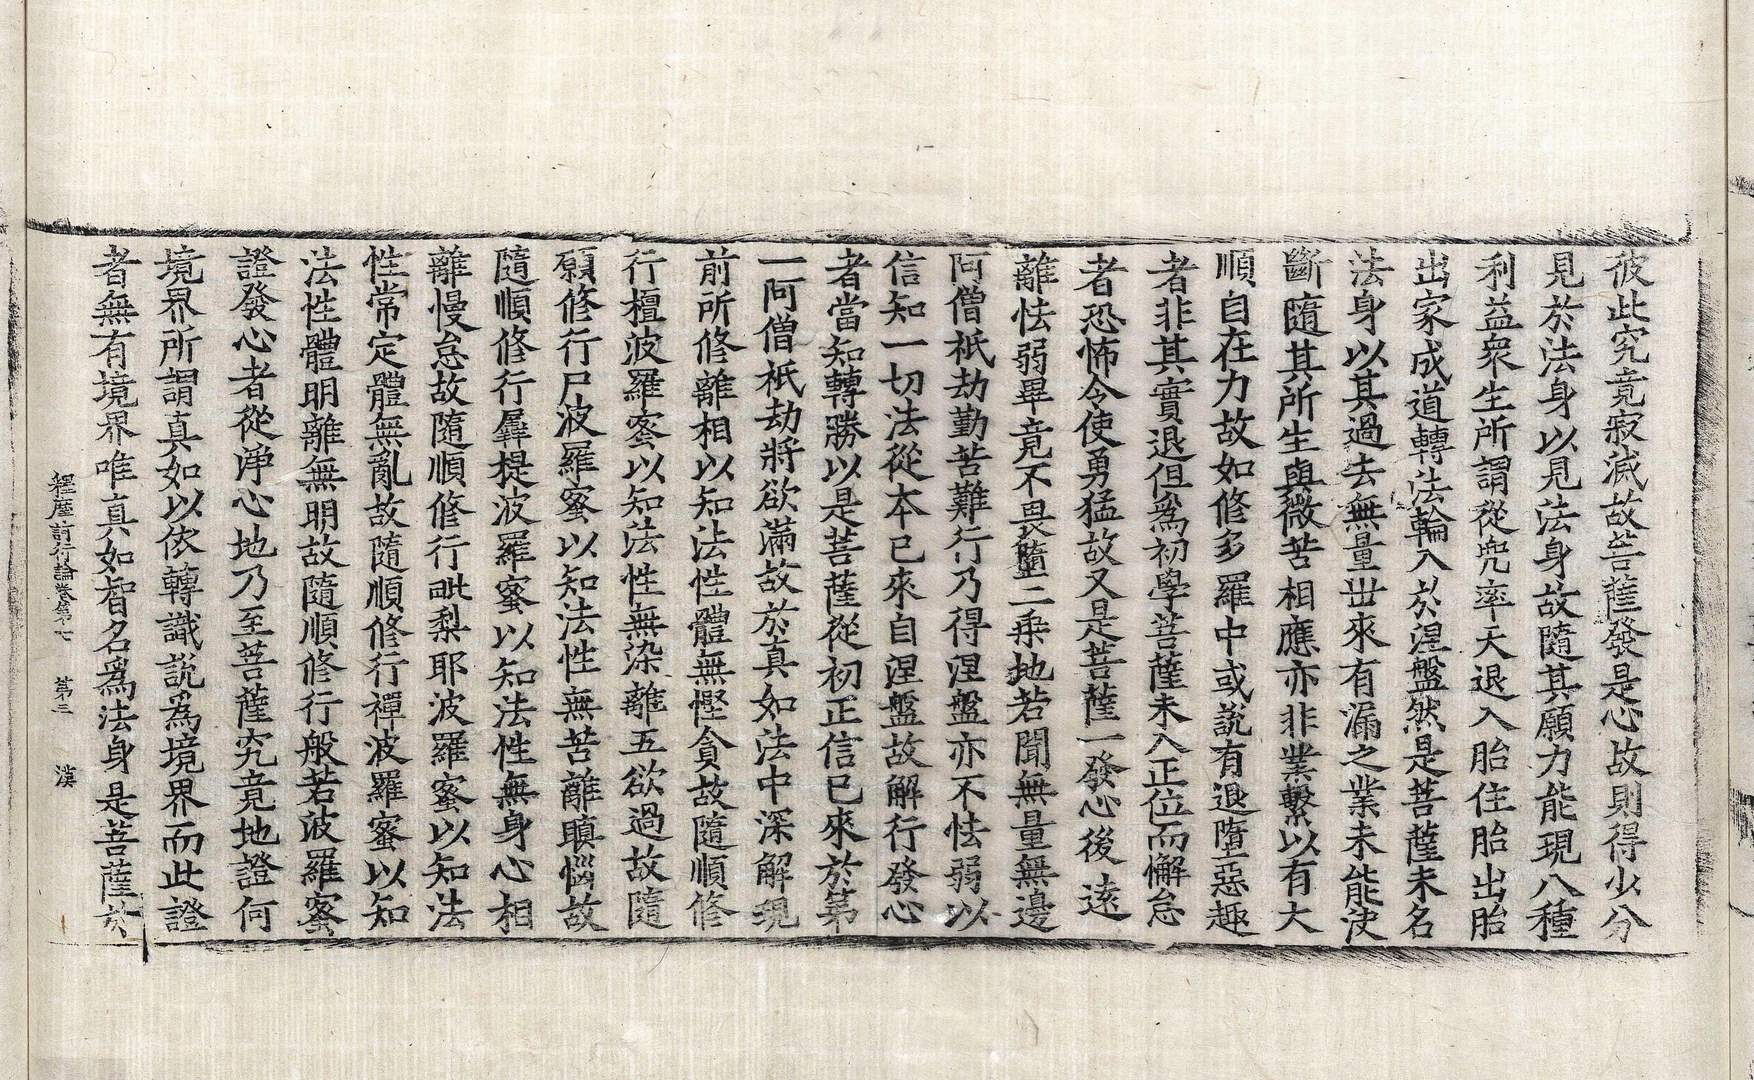 彼此究竟寂滅故菩薩發是心故則得少分
見於法身以見法身故隨其願力能現八種
利益衆生所謂從兜率天退入胎住胎出胎
出家成道轉法輪入於涅盤然是菩薩未名
法身以其過去無量世來有漏之業未能决
斷隨其所生與微苦相應亦非業繫以有大
順自在力故如修多羅中或說有退墮惡趣
者非其實退但爲初學菩薩未入正位而懈怠
者恐怖令使勇猛故又是菩薩一發心後遠
離怯弱畢竟不畏墮二乘地若聞無量無邊
阿僧祇劫勤苦難行乃得涅盤亦不怯弱以
信知一切法從本已來自涅盤故解行發心
者當知轉勝以是菩薩從初正信已來於第
一阿僧祇劫將欲滿故於真如法中深解現
前所修離相以知法性體無慳貪故隨順修
行檀波羅蜜以知法性無染離五欲過故隨
願修行尸波羅蜜以知法性無苦離瞋惱故
隨順修行羼提波羅蜜以知法性無身心相
離慢怠故隨順修行毗梨耶波羅蜜以知法
性常定體無亂故隨順修行禪波羅蜜以知
法性體明離無明故隨順修行般若波羅蜜
證發心者從淨心地乃至菩薩究竟地證何
境界所謂真如以依轉識說爲境界而此證
者無有境界唯真如智名爲法身是菩薩於
釋摩訶衍論卷第七 第三 漢